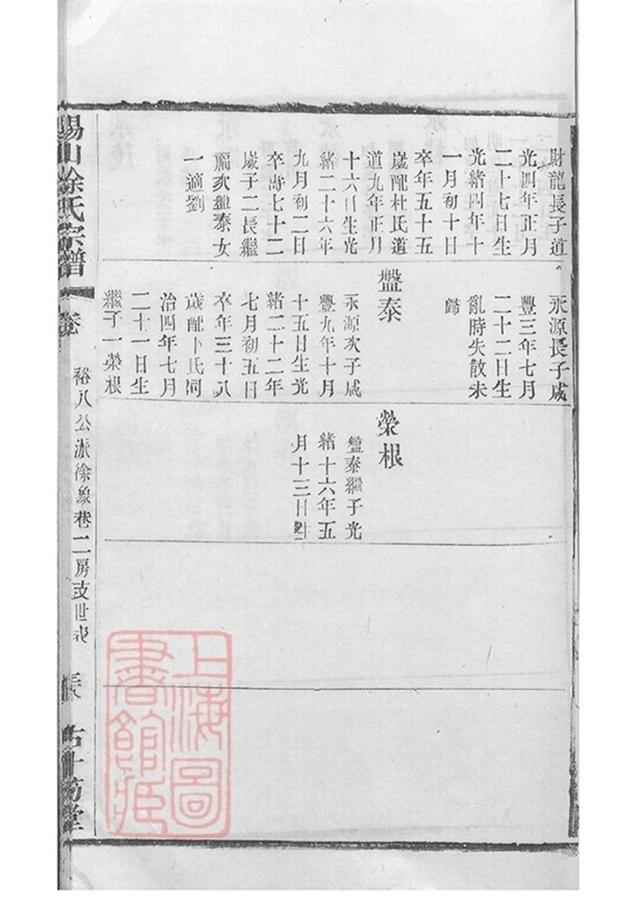 財龍長子道
光四年正月
二十七日生
光緒四年十
一月初十日
卒年五十五
歲配杜氏道
道九年正月
十六日生光
緒二十六年
九月初二日
卒壽七十二
歲子二長繼
福次盤泰女
一適劉
永源長子咸
豐三年七月
二十二日生
亂時失散未
歸
盤泰
永源次子咸
豐九年十月
十五日生光
緒二十二年
七月初五日
卒年三十八
歲配卜氏同
治四年七月
二十一日生
繼子一榮根
榮根
盤泰繼子光
緒十六年五
月十三日生
錫山徐氏宗譜
卷
裕八公派徐象巷二房支世表
古十笏堂
上海圖
書館藏